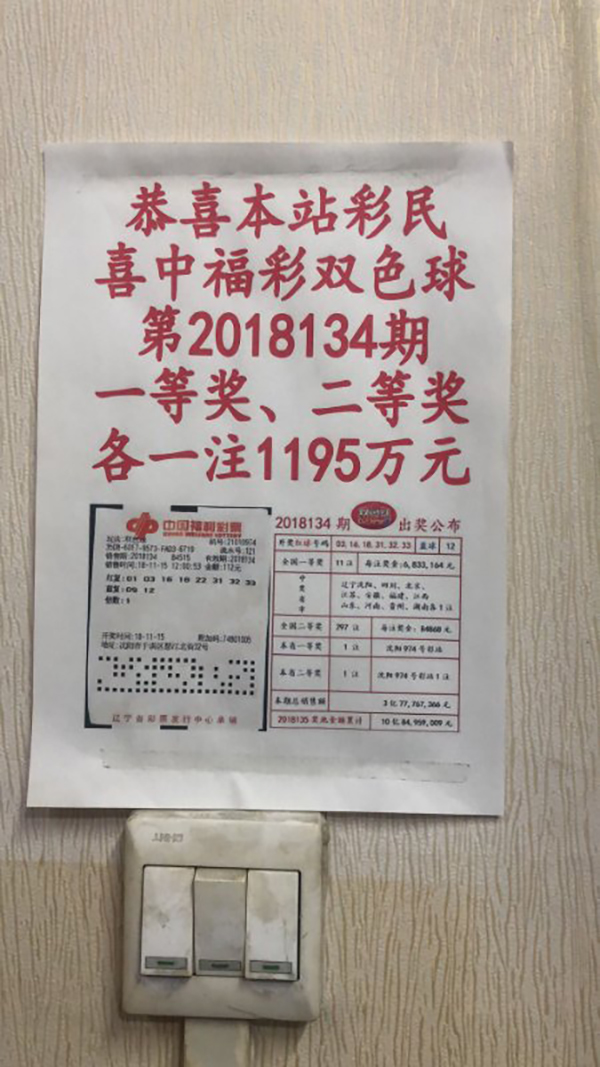 恭喜本站彩民
喜中福彩双色球
第2018134期
一等奖、二等奖
各一注1195万元
中国福利彩票
CHINA WELFARE LOTTERY
机号:21010974
流水号:121
销售期:2018134 84515 有效期:2018134
销售时间:18-11-15 12:00:53 金额:112元
红复:01 03 16 18 22 31 32 33
蓝复:09 12
倍数:1
开奖时间:18-11-15 附加码:74801005
地址:沈阳市于洪区怒江北街52号
辽宁省彩票发行中心承销
2018134 期 出奖公布
开奖红球号码 03, 16, 18, 31, 32, 33 蓝球 12
全国一等奖 11 注 每注奖金:6,833,164 元
中奖省市
辽宁沈阳、四川、北京、
江苏、安徽、福建、江西
山东、河南、贵州、湖南各 1 注
全国二等奖 297 注 每注奖金: 84868 元
本省一等奖 1 注 沈阳 974 号彩站
本省二等奖 1 注 沈阳 974 号彩站 1 注
本期总销售额 3 亿 77,767,366 元
2018135 奖池金额累计 10 亿 84,959,009 元